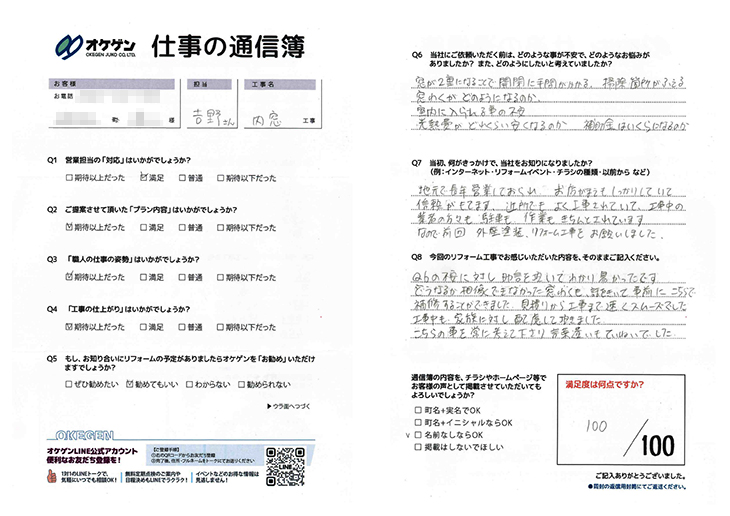 オケゲン
OKEGEN JUKO CO., LTD.
仕事の通信簿
お客様
担当
工事名
お電話
町
様
吉野さん
内窓
工事
Q1 営業担当の「対応」はいかがでしょうか?
□ 期待以上だった ☑ 満足 □ 普通 □ 期待以下だった
Q2 ご提案させて頂いた「プラン内容」はいかがでしょうか?
☑ 期待以上だった □ 満足 □ 普通 □ 期待以下だった
Q3 「職人の仕事の姿勢」はいかがでしょうか?
☑ 期待以上だった □ 満足 □ 普通 □ 期待以下だった
Q4 「工事の仕上がり」はいかがでしょうか?
☑ 期待以上だった □ 満足 □ 普通 □ 期待以下だった
Q5 もし、お知り合いにリフォームの予定がありましたらオケゲンを「お勧め」いただけ
ますでしょうか?
□ ぜひ勧めたい ☑ 勧めてもいい □ わからない □ 勧められない
▶ウラ面へつづく
OKEGEN
オケゲンLINE公式アカウント
便利なお友だち登録を!
【ご登録手順】
①右のQRコードからお友だち登録
②完了後、住所・フルネームをトークにてお送りください
1対1のLINEトークで、
気軽にいつでも相談OK!
無料定期点検のご案内や
日程決めもLINEでラクラク!
イベントなどのお得な情報は
見逃しません!
LINE
Q6 当社にご依頼いただく前は、どのような事が不安で、どのようなお悩みが
ありましたか? また、どのようにしたいと考えていましたか?
窓が2重になることで開閉に手間がかかる、掃除箇所がふえる
窓わくがどのようになるのか
室内に入られる事の不安
光熱費がどれくらい安くなるのか 補助金はいくらになるのか
Q7 当初、何がきっかけで、当社をお知りになりましたか?
(例:インターネット・リフォームイベント・チラシの種類・以前から など)
地元で長年営業しておられ お店がまえもしっかりしていて
信頼がもてます。近所でも よく工事されていて、工事中の
業者の方々も 駐車も 作業も きちんとされています
なので前回 外壁塗装、リフォーム工事を お願いしました。
Q8 今回のリフォーム工事でお感じいただいた内容を、そのままご記入ください。
Q6の不安に対し 助言を頂いて わかり易かったです
どうなるか想像できなかった窓わくも、話をきいて 事前に こちらで
補修することができました。見積りから工事まで速くスムーズでした
工事中も 家族に対し 配慮して頂きました
こちらの事を常に考えて下さり 言葉遣いもていねいでした。
通信簿の内容を、チラシやホームページ等で
お客様の声として掲載させていただいても
よろしいでしょうか?
□ 町名+実名でOK
□ 町名+イニシャルならOK
∨ □ 名前なしならOK
□ 掲載はしないでほしい
満足度は何点ですか?
100
/100
ご記入ありがとうございました。
●同封の返信用封筒にてご返送ください。